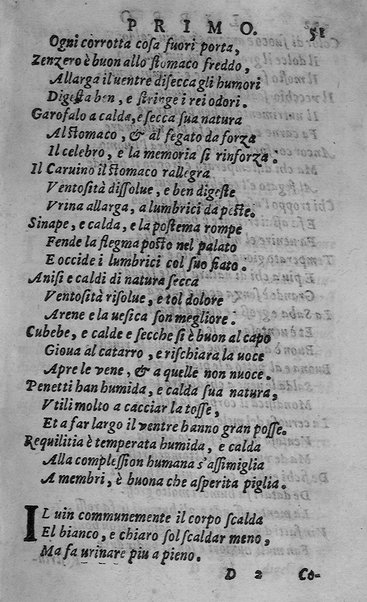 PRIMO. 51
Ogni corrotta cosa fuori porta,
Zenzero è buon allo stomaco freddo,
Allarga il uentre disecca gli humori
Digesta ben, e stringe i rei odori.
Garofalo a calda, è secca sua natura
Al stomaco, & al fegato da forza
Il celebro, e la memoria si rinforza:
Il Caruino il stomaco rallegra
Ventosità dissolue, e ben digeste
Vrina allarga, a lumbrici da peste.
Sinape, e calda, e la postema rompe
Fende la flegma posto nel palato
E occide i lumbrici col suo fiato.
Anisi e caldi di natura secca
Ventosità risolue, e tol dolore
Arene e la uesica son megliore.
Cubebe, e calde e secche si è buon al capo
Gioua al catarro, e rischiara la uoce
Apre le vene, & a quelle non nuoce.
Penetti han humida, e calda sua natura,
Vtili molto a cacciar la tosse,
Et a far largo il ventre hanno gran posse.
Requilitia è temperata humida, e calda
Alla complession humana s'assimiglia
A membri, è buona che asperita piglia.
IL uin communemente il corpo scalda
El bianco, e chiaro sol scaldar meno,
Ma fa urinare piu a pieno.
D 2 Co-